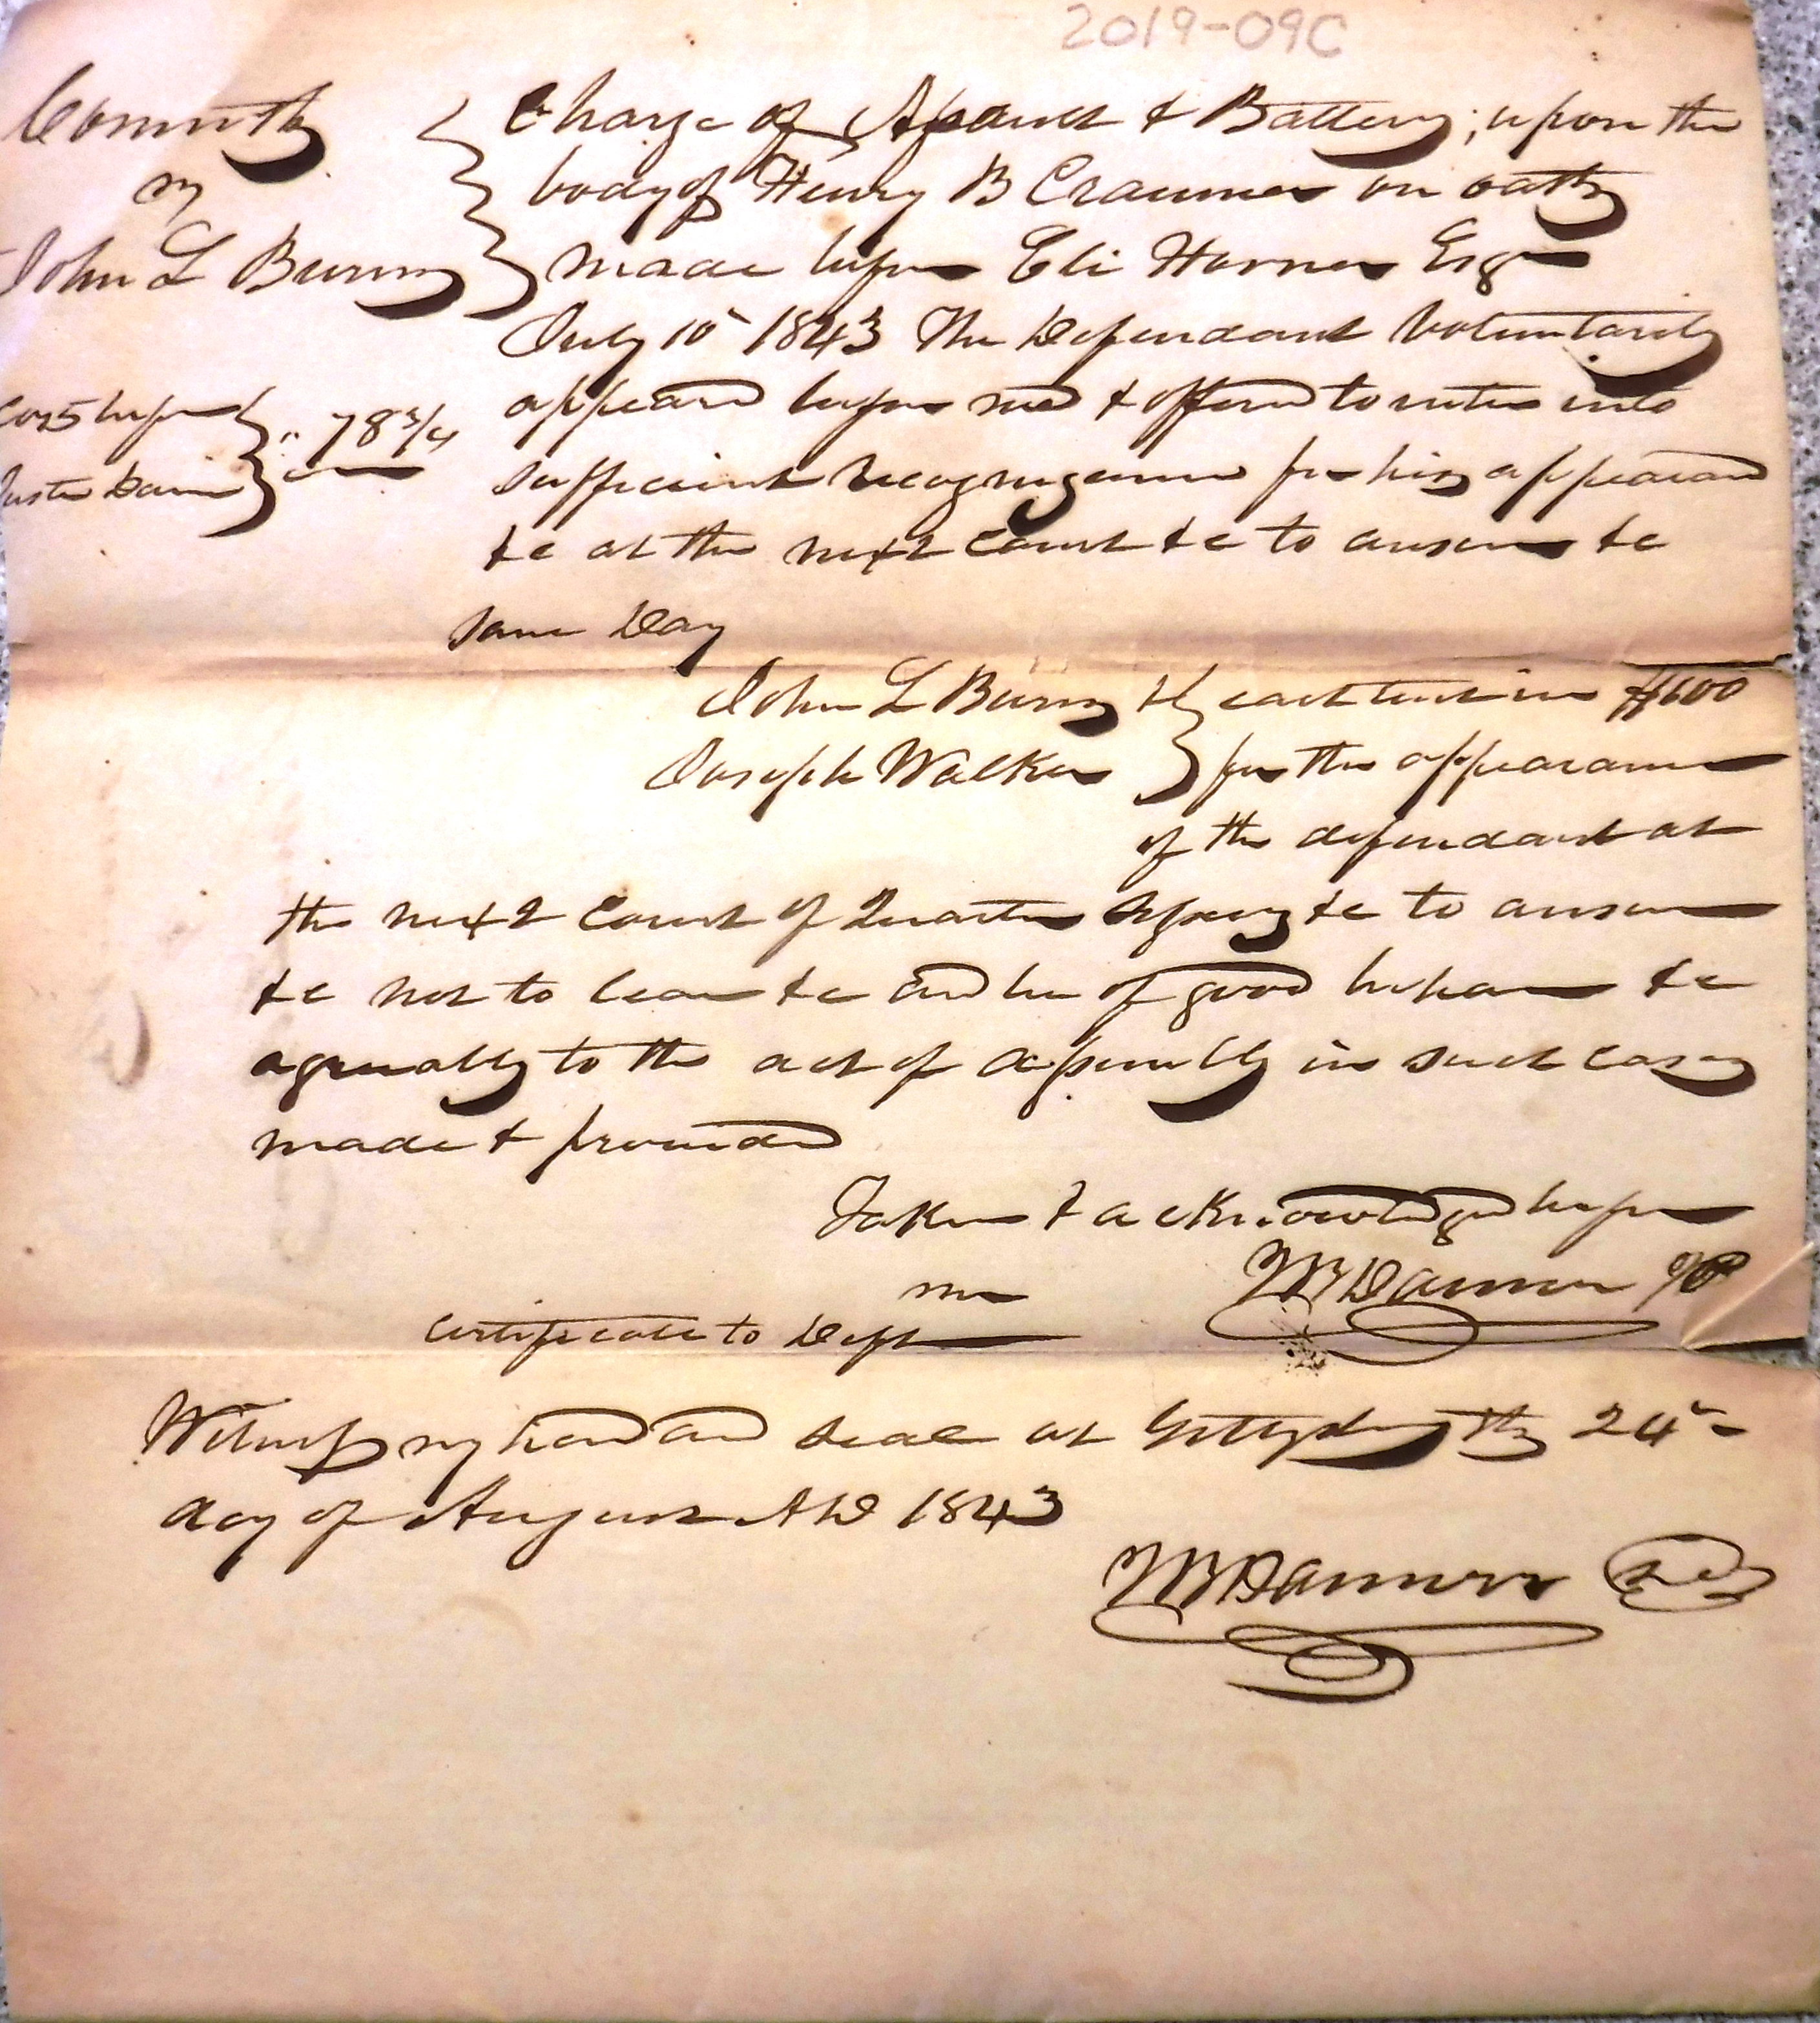 2019-09C
Comwth
vs
John L Burns
Charge of Assault & Battery; upon the
body of Henry B Craumer on oath
made before Eli Horner Esqr
July 10 1843 The Defendant Voluntarily
appeard before me & offered to enter into
sufficient recognizance for his appearance
&c at the next court &c to answer &c
before
Justice
78 3/4
same Day
John L Burns
Joseph Walker
each tent in $100
for the appearance
of the defendant at
the next Court of Quarter Sessions &c to answer
&c not to leave &c and be of good behavr &c
agreeably to the act of assembly in such cases
made & provided
Taken & acknowledged before
me
M Danner JP
Certificate to Deft
Witness my hand and seal at Gettysburg this 24
day of August AD 1843
M Danner Seal